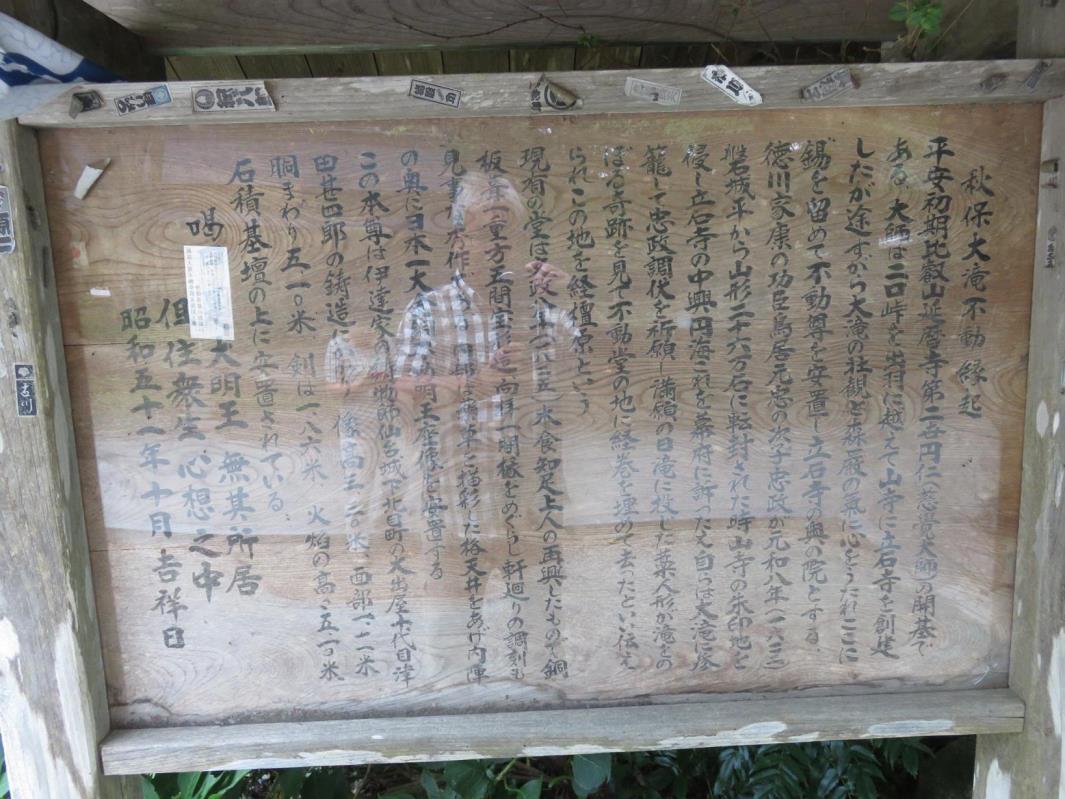 秋保大滝不動縁起
平安初期比叡山延暦寺第三五円仁(慈覚大師)の開基で
ある 大師は二口峠を出羽に越えて山寺に立石寺を創建
したが途すがら大滝の壮観と森厳の氣に心をうたれここに
錫を留めて不動尊を安置し立石寺の奥の院とする
徳川家康の功臣鳥居元忠の次子忠政が元和八年(一六二二
磐石城平から山形二十六万石に転封された時山寺の朱印地を
侵し立石寺の中興円海これを幕府に訴ったえ自らは大滝に参
籠して忠政調伏を祈願し満願の日滝に投した藁人形が滝をの
ぼる奇跡を見て不動堂の地に経巻を埋めて去ったとい伝え
られこの地を経壇原という
現有の堂は 木食知足上人の再興したもので銅
板葺 重方五間宝形造 向拝一間椽をめぐらし軒廻りの調刻も
見事 作 描彩した格天井をあけ内陣
の奥に日本一大 明王座像を安置する
この本尊は伊達家の 鋳物師仙台城下北目町の大出屋十代目津
田甚四郎の鋳造 像高三・三〇米、面部一・二一米
胴まわり五・一〇米 剣は一・八六米 火焰の高さ五・一〇米
石積基壇の上に安置されている
喝 大明王 無其所居
但住衆生 心想之中
昭和五十一年十月吉祥日
吉川